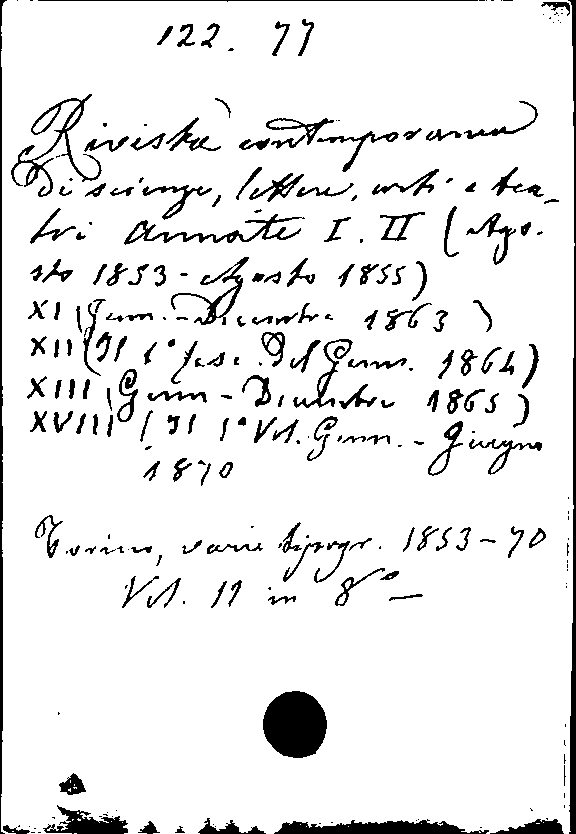 122. 77
Rivista contemporanea
di scienze, lettere, arti e tea-
tri annate I. II (Ago-
sto 1853 - Agosto 1855)
XI (Genn. - Dicembre 1863)
XII (Il 1° fasc. del Genn. 1864)
XIII (Genn - Dicembre 1865)
XVIII (Il 1° Vol. Genn. - Giugno
1870
Torino, varie tipogr. 1853-70
Vol. 11 in 8° -